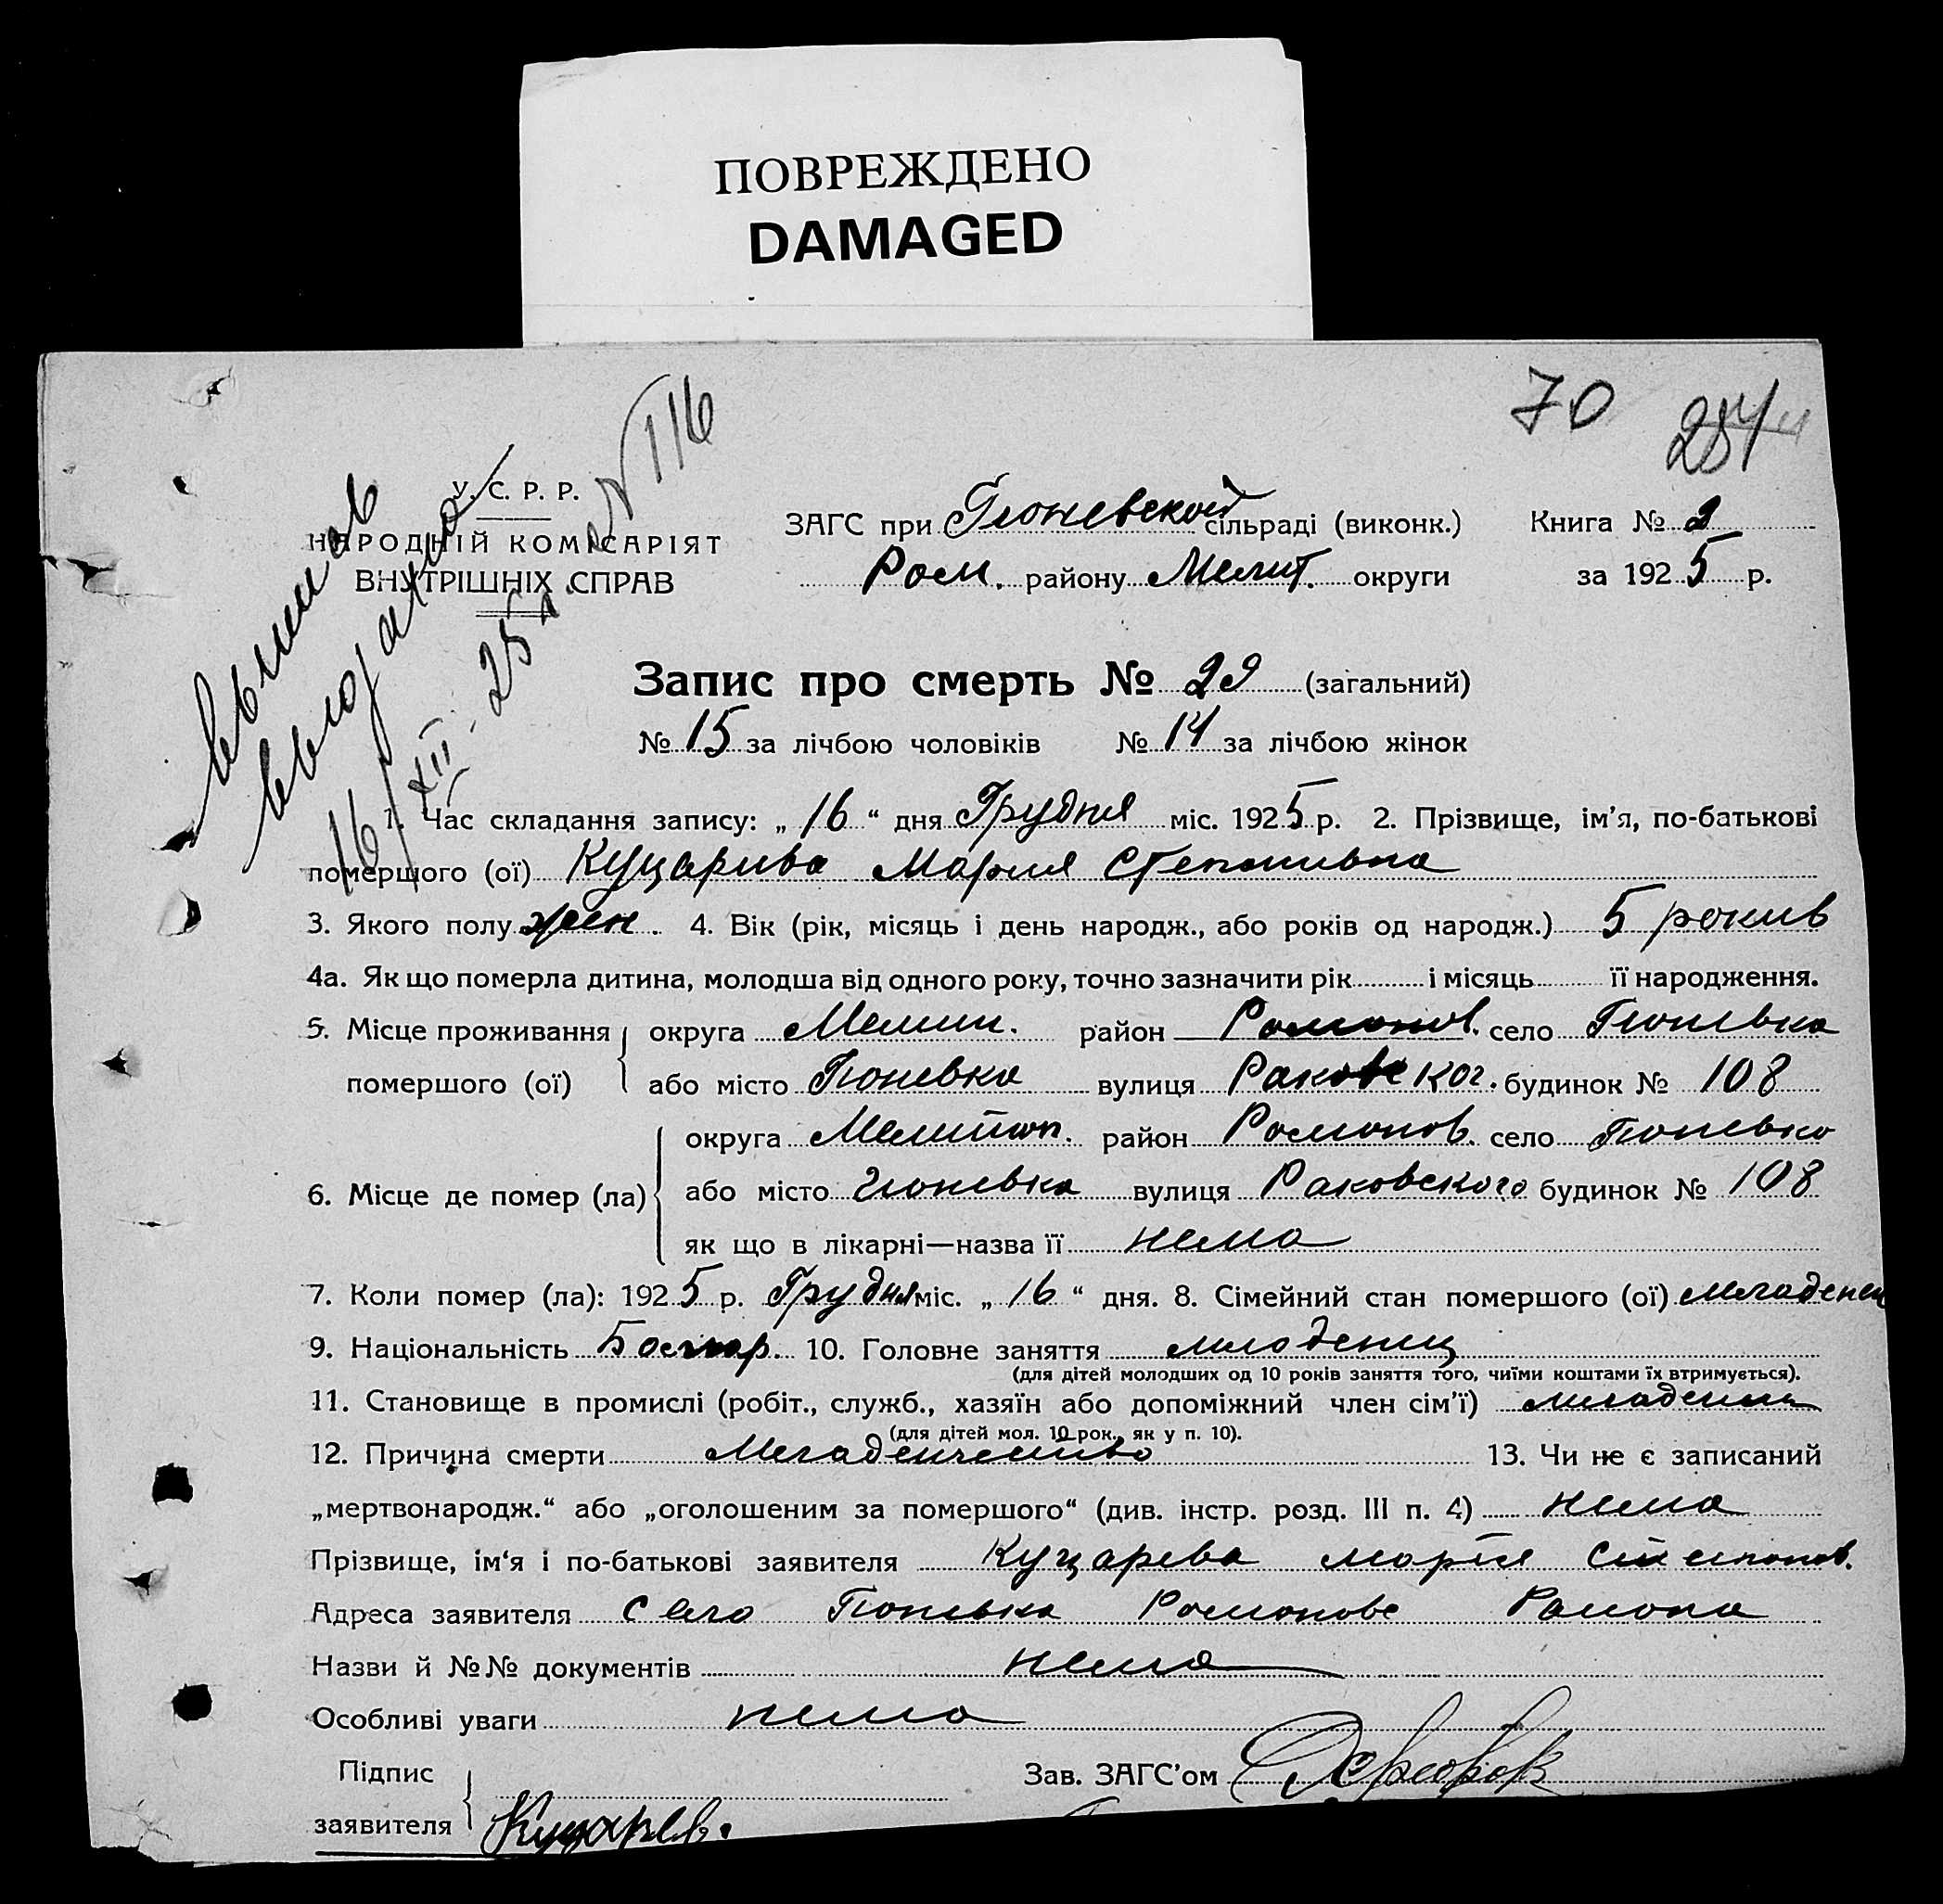 ПОВРЕЖДЕНО
DAMAGED
70
У. С. Р. Р.
НАРОДНІЙ КОМІСАРІЯТ
ВНУТРІШНІХ СПРАВ
№ 116
16/XII-25
ЗАГС при Гюневской сільраді (виконк.) Книга № 2
Ром. району Мелит. округи за 1925 р.
Запис про смерть № 29 (загальний)
№ 15 за лічбою чоловіків № 14 за лічбою жінок
1. Час складання запису: „ 16 “ дня Грудня міс. 1925 р. 2. Прізвище, ім'я, по-батькові
помершого (ої) Куцарива Мария Степанивна
3. Якого полу жен. 4. Вік (рік, місяць і день народж., або років од народж.) 5 рокив
4а. Як що померла дитина, молодша від одного року, точно зазначити рік і місяць її народження.
5. Місце проживання округа Мелит. район Романов. село Гюневка
помершого (ої) або місто Гюневка вулиця Раковског. будинок № 108
округа Мелитоп. район Романов. село Гюневка
6. Місце де помер (ла) або місто Гюневка вулиця Раковского будинок № 108
як що в лікарні—назва її нема
7. Коли помер (ла): 1925 р. Грудня міс. „ 16 “ дня. 8. Сімейний стан помершого (ої) младенец
9. Національність Болгар. 10. Головне заняття младенец
(для дітей молодших од 10 років заняття того, чиїми коштами їх втримується).
11. Становище в промислі (робіт., служб., хазяїн або допоміжний член сім'ї) младенец
(для дітей мол. 10 рок., як у п. 10).
12. Причина смерти Младенчество 13. Чи не є записаний
„мертвонародж.“ або „оголошеним за помершого“ (див. інстр. розд. III п. 4) нема
Прізвище, ім'я і по-батькові заявителя Куцарева Мария Степанов.
Адреса заявителя Село Гюневка Романове Района
Назви й №№ документів нема
Особливі уваги нема
Підпис Зав. ЗАГС'ом
заявителя Куцарев.